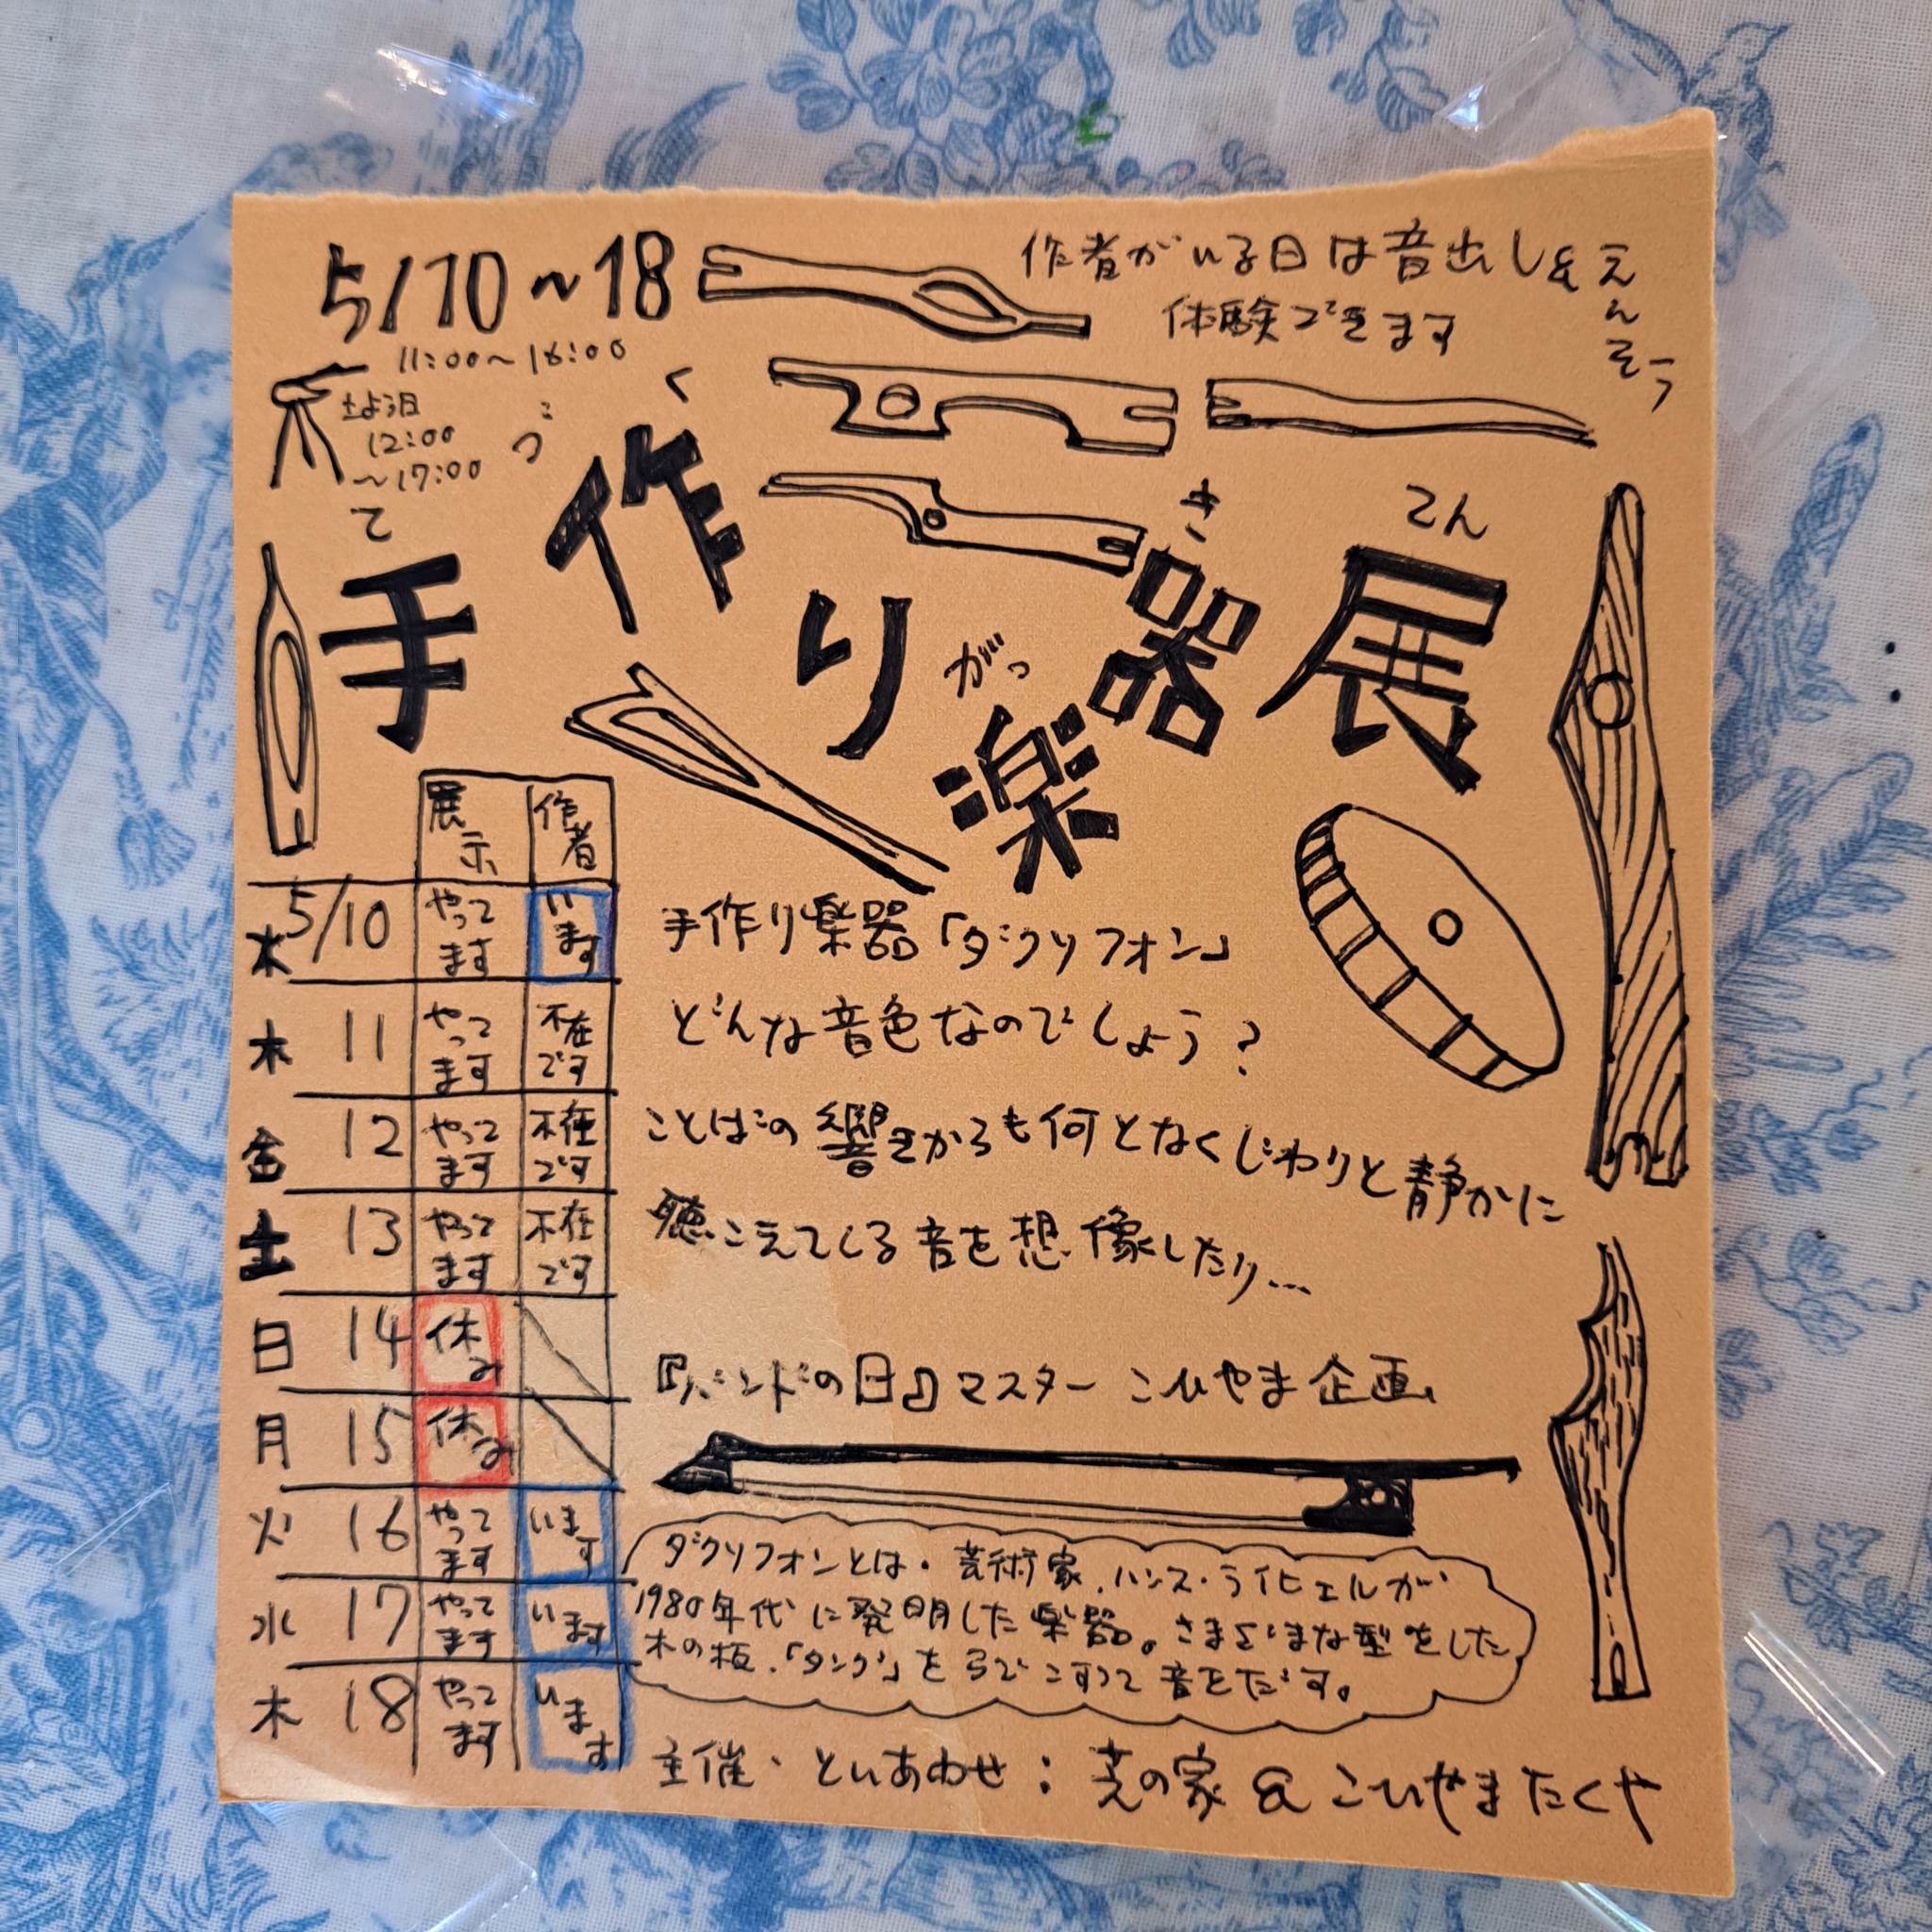 5/10~18
11:00~16:00
土よう日
12:00
~17:00
作者がいる日は音出し&えんそう
体験できます
て づく がっ き てん
手作り楽器展
展示 作者
水 5/10 やってます います
木 11 やってます 不在です
金 12 やってます 不在です
土 13 やってます 不在です
日 14 休み
月 15 休み
火 16 やってます います
水 17 やってます います
木 18 やってます います
手作り楽器「ダクソフォン」
どんな音色なのでしょう?
ことばの響きからも何となくじわりと静かに
聴こえてくる音を想像したり…
『バンドの日』マスター こひやま企画
ダクソフォンとは・芸術家、ハンス・ライヒェルが
1980年代に発明した楽器。さまざまな型をした
木の板、「タング」を弓でこすって音をだす。
主催・といあわせ:芝の家 & こひやまたくや